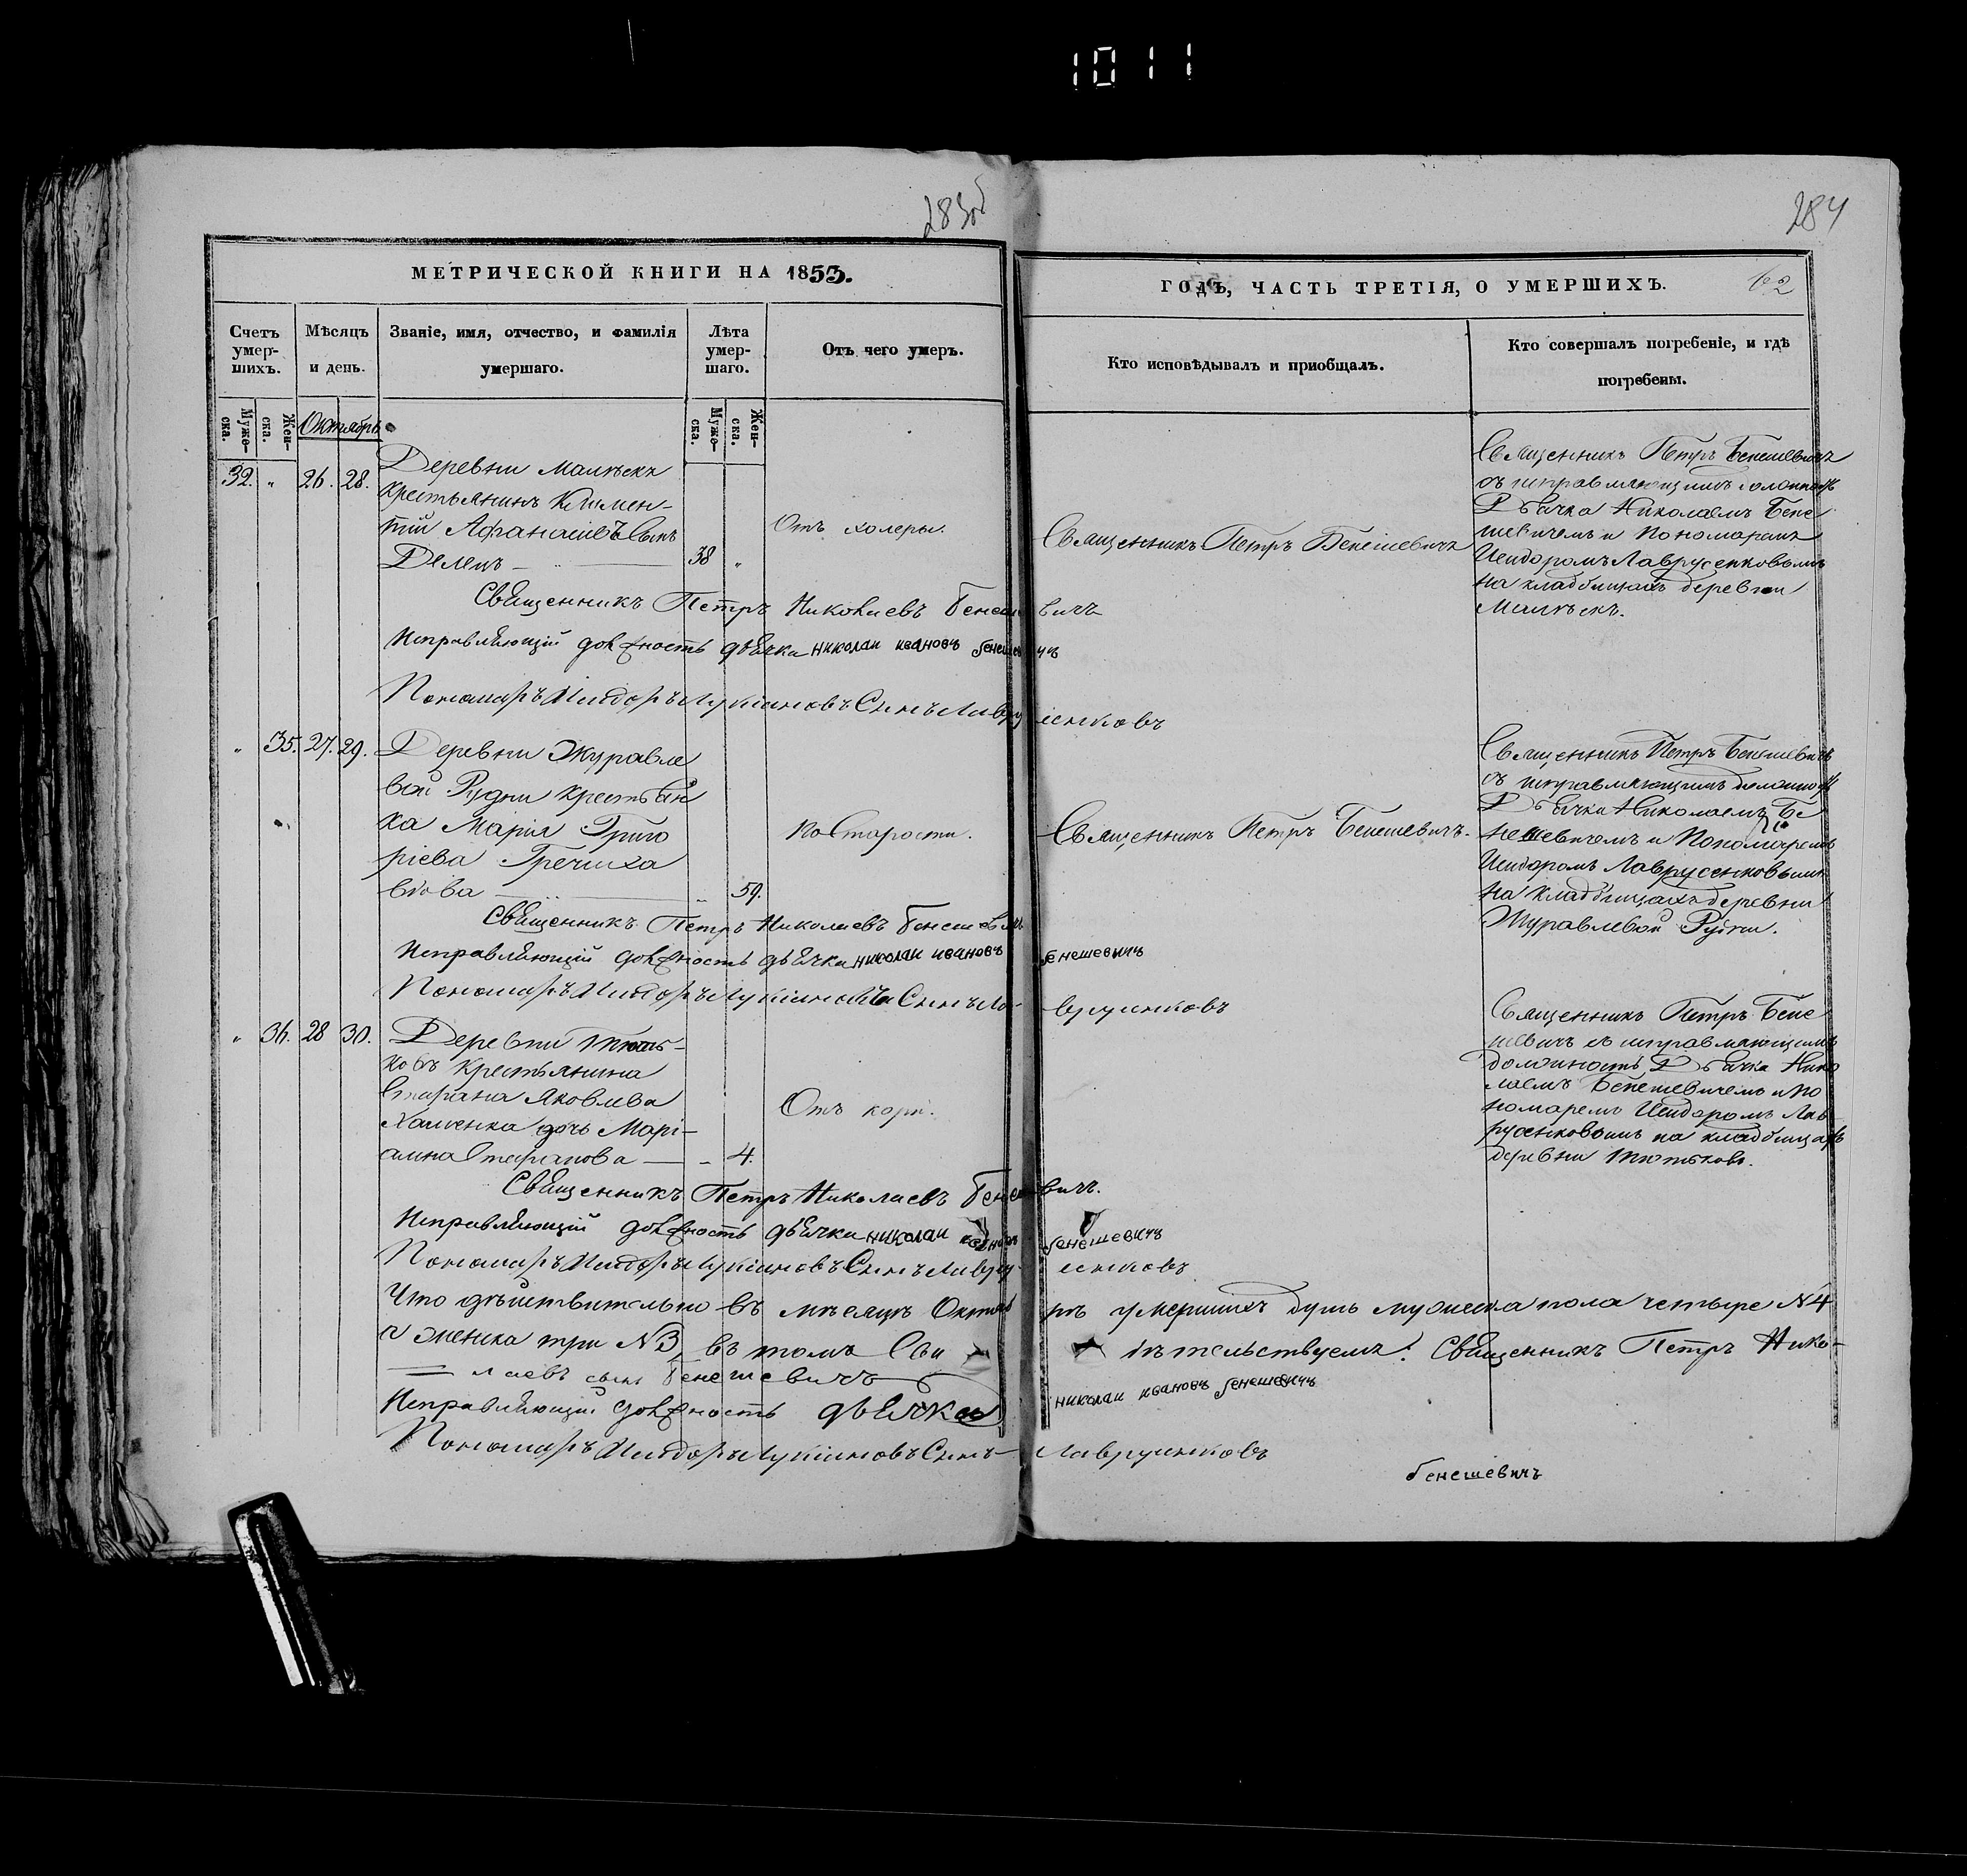 1011
283об
284
МЕТРИЧЕСКОЙ КНИГИ НА 1853.
ГОДЪ, ЧАСТЬ ТРЕТІЯ, О УМЕРШИХЪ.
62
Счетъ умер-шихъ.
Мѣсяцъ и день.
Званіе, имя, отчество, и фамилія умершаго.
Лѣта умер-шаго.
Отъ чего умеръ.
Кто исповѣдывалъ и приобщалъ.
Кто совершалъ погребеніе, и гдѣ погребены.
Муже-ска.
Жен-ска.
Октябрь
Муже-ска.
Жен-ска.
32. " 26. 28.
Деревни
крестьянинъ Климен-
тій Афанасіевъ сынъ
Делецъ 38 "
Отъ холеры.
Священникъ Петръ Бенешевичъ
Священникъ Петръ Бенешевичъ
съ исправляющимъ должность
Дьячка Николаемъ Бене
шевичемъ и Пономаремъ
Исидоромъ Лаврусенковымъ
на кладбищахъ деревни
Священникъ Петръ Николаевъ Бенешевичъ
Исправляющій должность дьячка николаи ивановъ бенешевичъ
Пономарь Исидоръ Лукіановъ Сынъ Лаврусенковъ
" 35. 27. 29.
Деревни Журавле
вой Рудни крестьян
ка Марія Григо
ріева Гречиха
вдова " 59.
по Старости.
Священникъ Петръ Бенешевичъ.
Священникъ Петръ Бенешевичъ
съ исправляющимъ должность
Дьячка Николаемъ Бе
нешевичемъ и Пономаремъ
Исидоромъ Лаврусенковымъ
на кладбищахъ деревни
Журавлевой Рудни.
Священникъ Петръ Николаевъ Бенешевичъ
Исправляющій должность дьячка николаи ивановъ бенешевичъ
Пономарь Исидоръ Лукіановъ Сынъ Лаврусенковъ
" 36. 28 30.
Деревни Тють-
ковъ крестьянина
Стефана Яковлева
дочь Марі-
анна Стефанова - 4.
Отъ кори.
Священникъ Петръ Бене
шевичъ съ исправляющимъ
должность Дьячка Нико
лаемъ Бенешевичемъ и По
номаремъ Исидоромъ Лав
русенковымъ на кладбищахъ
деревни Тютьковъ.
Священникъ Петръ Николаевъ Бенешевичъ.
Исправляющій должность дьячка николаи ивановъ бенешевичъ
Пономарь Исидоръ Лукіановъ Сынъ Лаврусенковъ
Что дѣйствительно въ мѣсяцѣ Октябрѣ умершихъ душъ мужеска пола четыре N4
и женска три N3, въ томъ Свидѣтельствуемъ: Священникъ Петръ Нико-
лаевъ сынъ Бенешевичъ
Исправляющій должность дьячка николаи ивановъ бенешевичъ
Пономарь Исидоръ Лукіановъ Сынъ Лаврусенковъ
бенешевичъ